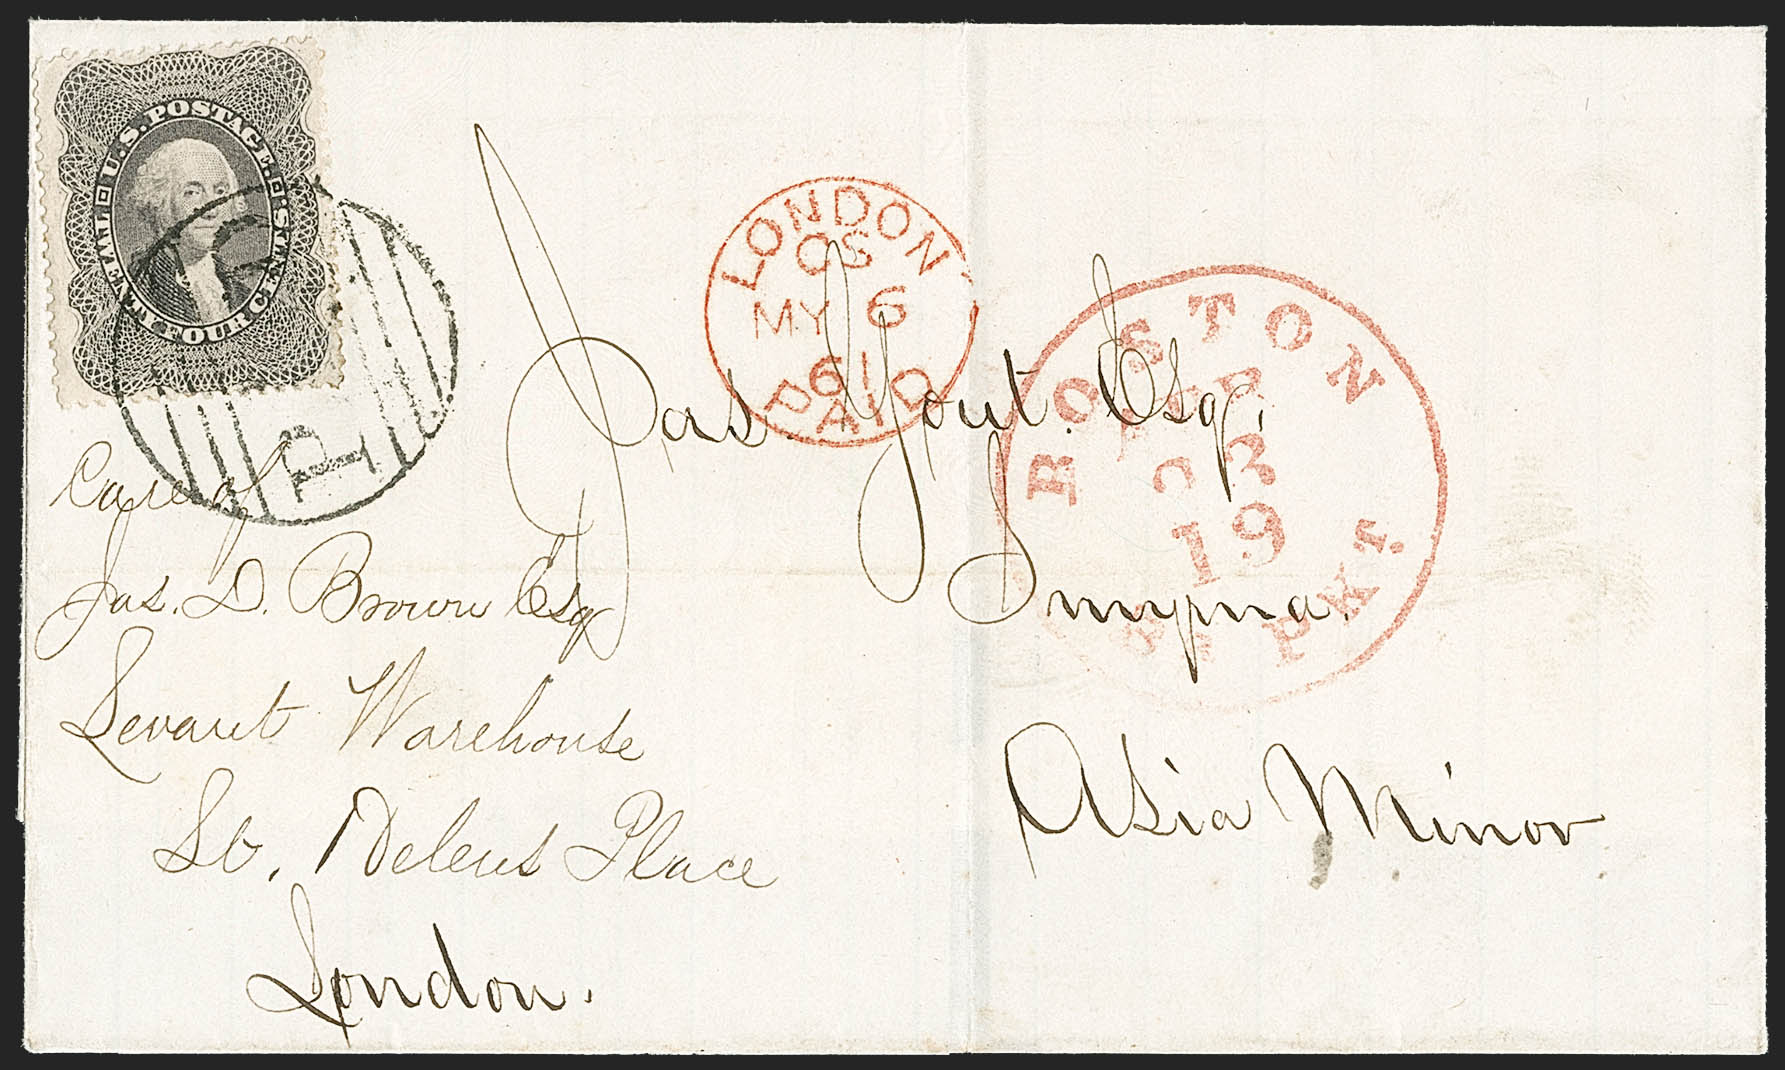 U.S. POSTAGE.
TWENTY FOUR CENTS.
LONDON
MY 6
61
PAID
BOSTON
APR
23
19
BR. PKT.
PAID
Jas. Yout. Esq.
Smyrna.
Asia Minor
Care of
Jas. D. Brown Esq
Levant Warehouse
St. Helens Place
London.